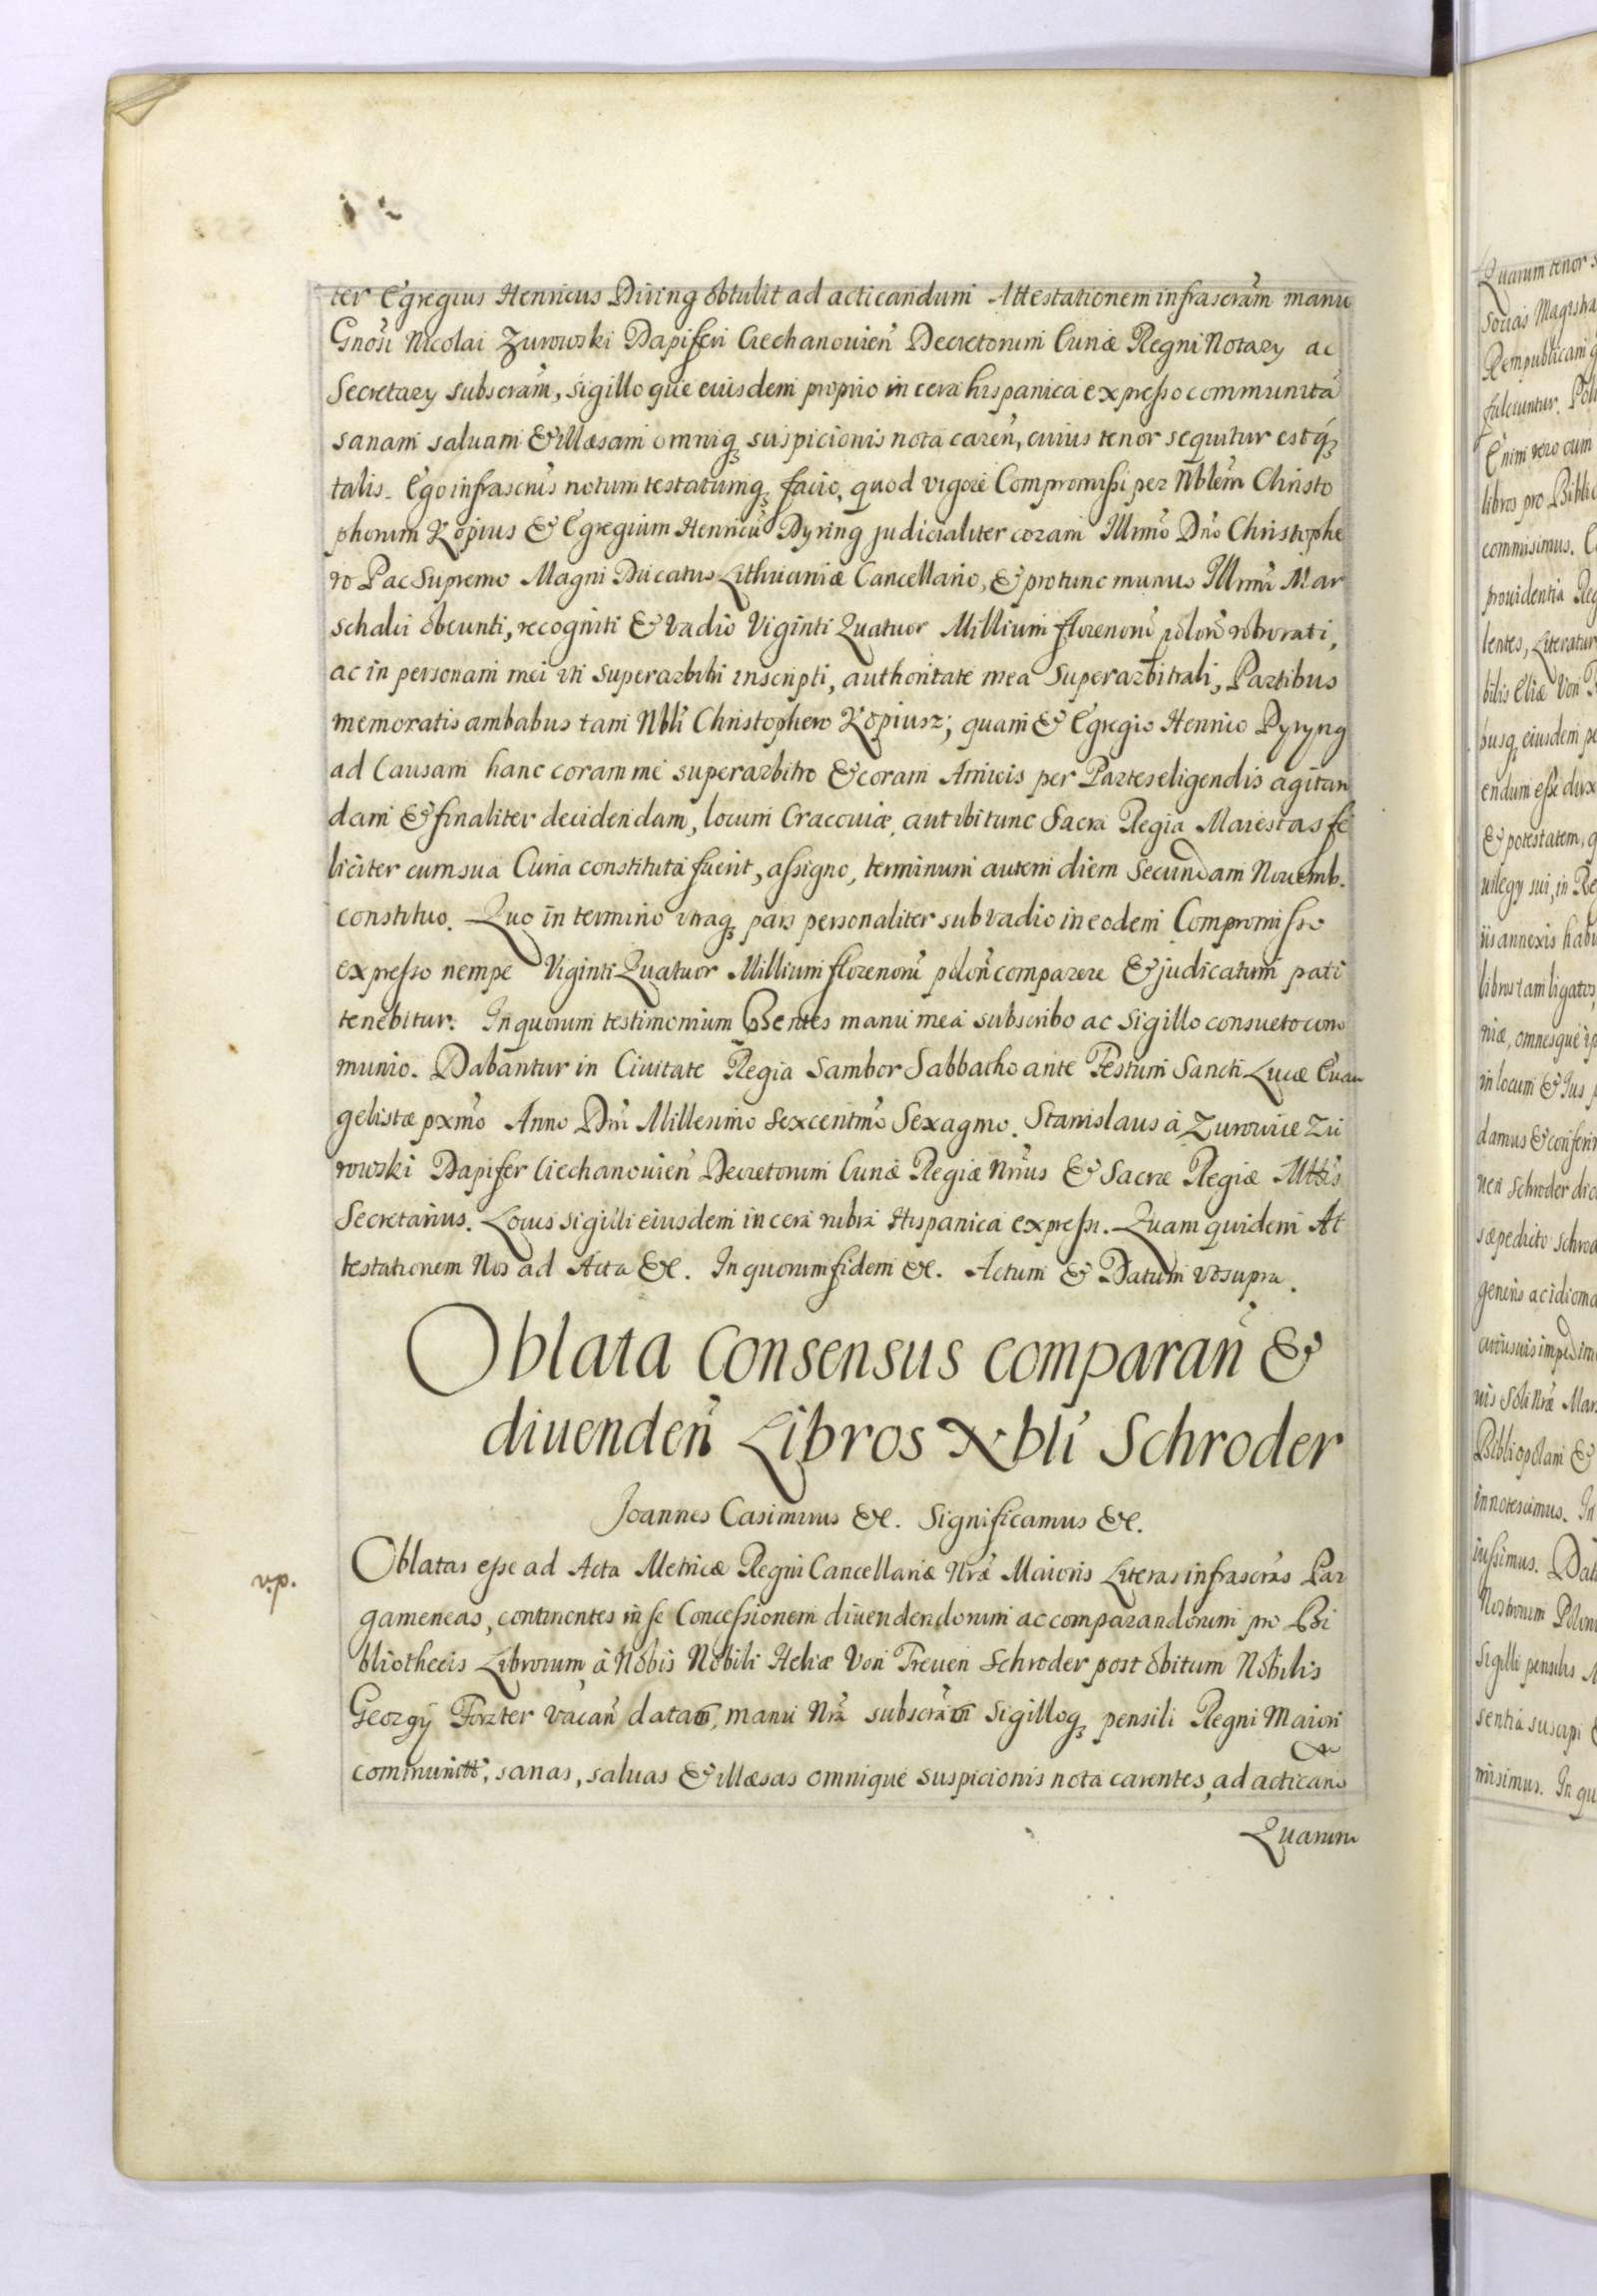 ter Egregius Henricus Diring obtulit ad acticandum Attestationem infrascrãm manu
Gnosi Nicolai Zurowski Dapiferi Ciechanouien Decretorum Curiæ Regni Notary ac
Secretary subscrãm, sigilloque eiusdem proprio in cera hispanica expresso communitã
sanam saluam & illæsam omniq suspicionis nota careñ, cuius tenor sequitur estq
talis. Ego infrascrus notum testatumq facio, quod vigore Compromissi per Nblem Christo
phorum Kopius & Egregium Henricũ Dyring judicialiter coram Illmo Dno Christophe
ro Pac Supremo Magni Ducatus Lithuaniæ Cancellario, & pro tunc munus Illmi Mar
schalci obeunti, recogniti & vadio Viginti Quatuor Millium florenorũ polon roborati,
ac in personam mei uti Superarbitri inscripti, authoritate mea Superarbitrali, Partibus
memoratis ambabus tam Nbli Christophero Kopiusz; quam & Egregio Henrico Dyryng
ad Causam hanc coram me superarbitro & coram Amicis per Partes eligendis agitan
dam & finaliter decidendam, locum Cracoviæ, aut ubi tunc Sacra Regia Maiestas fe
liciter cum sua Curia constituta fuerit, assigno, terminum autem diem Secundam Nouemb.
constituo. Quo in termino utraq pars personaliter sub vadio in eodem Compromisso
expresso nempe Viginti Quatuor Millium florenorũ polon comparere & judicatum pati
tenebitur. In quorum testimonium Psentes manu mea subscribo ac Sigillo consueto com
munio. Dabantur in Ciuitate Regia Sambor Sabbatho ante Festum Sancti Lucæ Euan
gelistæ pxmo Anno Dni Millesimo Sexcentmo Sexagmo. Stanislaus à Zurowice Zu
rowski Dapifer Ciechanouien Decretorum Curiæ Regiæ Nrius & Sacræ Regiæ Mttis
Secretarius. Locus sigilli eiusdem in cera rubra Hispanica expressi. Quam quidem At
testationem Nos ad Acta &c. In quorum fidem &c. Actum & Datum ut supra.
Oblata Consensus comparañ &
diuendeñ Libros Nbli Schroder
Joannes Casimirus &c. Significamus &c.
vp.
Oblatas esse ad Acta Metricæ Regni Cancellariæ Nræ Maioris Literas infrascras Par
gameneas, continentes in se Concessionem diuendendorum ac comparandorum pro Bi
bliothecis Librorum à Nobis Nobili Heliæ Von Treuen Schroder post obitum Nobilis
Georgij Forzter vacañ datas, manu Nra subscras Sigilloq pensili Regni Maiori
communitt, sanas, saluas & illæsas omnique suspicionis nota carentes, ad acticand
Quarum